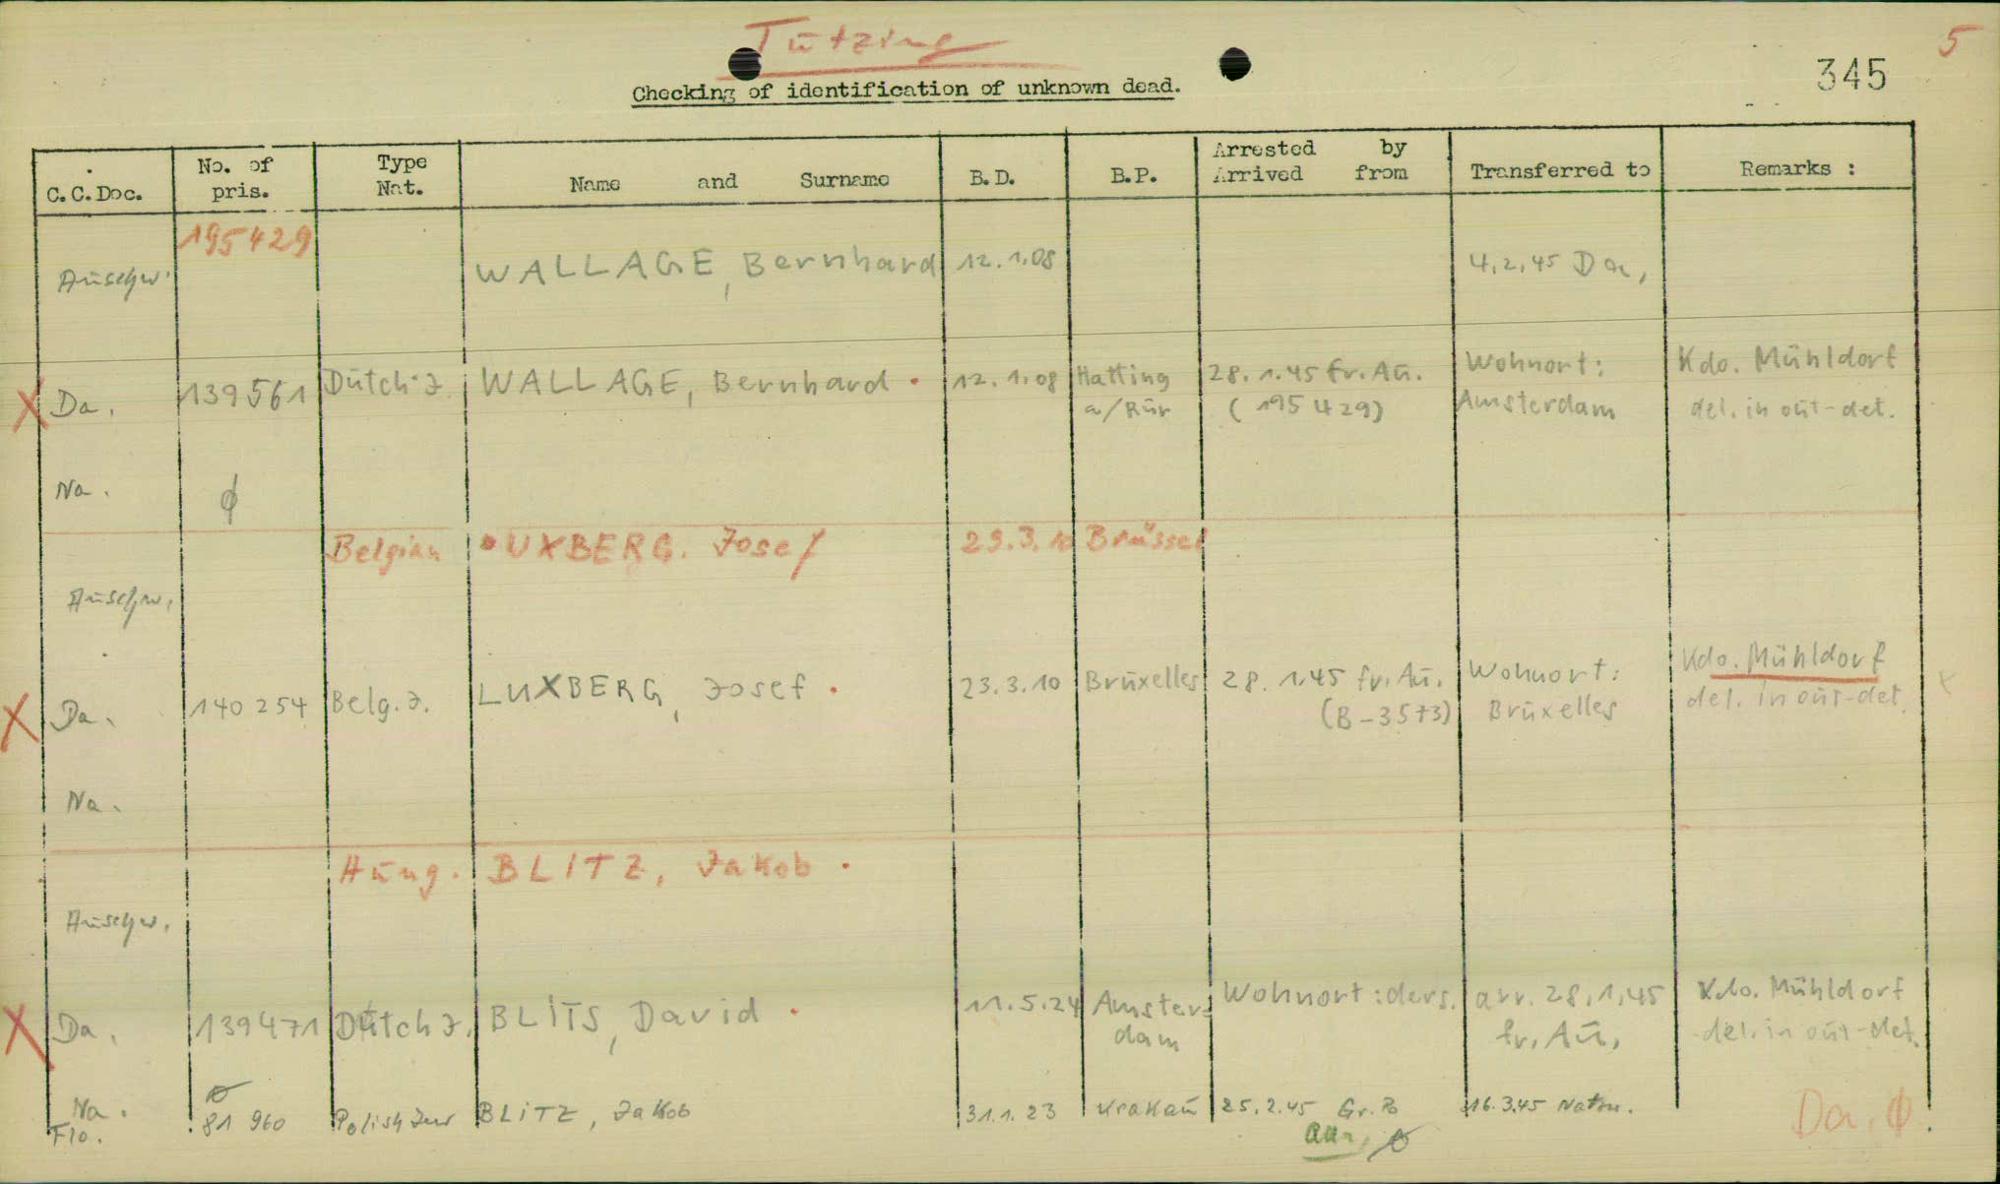 Tutzing
5
345
Checking of identification of unknown dead.
C.C.Doc. No. of pris. Type Nat. Name and Surname B.D. B.P. Arrested by Arrived from Transferred to Remarks :
195429
Auschw. WALLAGE, Bernhard 12.1.08 4.2.45 Da,
X Da. 139561 Dutch J. WALLAGE, Bernhard . 12.1.08 Hatting a/Rur 28.1.45 fr. Au. (195429) Wohnort: Amsterdam Kdo. Mühldorf del. in out-det.
Na. ϕ
Belgian UXBERG. Josef 29.3.10 Brüssel
Auschw.
X Da. 140254 Belg. J. LUXBERG, Josef . 23.3.10 Bruxelles 28.1.45 fr. Au. (B-3573) Wohnort: Bruxelles Kdo. Mühldorf del. in out-det.
Na.
Hung. BLITZ, Jakob .
Auschw.
X Da. 139471 Dutch J. BLITS, David . 11.5.24 Amster=dam Wohnort: ders. arr. 28.1.45 fr. Au. Kdo. Mühldorf del. in out-det.
Na.
Flo. 81960 Polish Jew BLITZ, Jakob 31.1.23 Krakau 25.2.45 Gr. R 16.3.45 Natzw.
Da. ϕ.